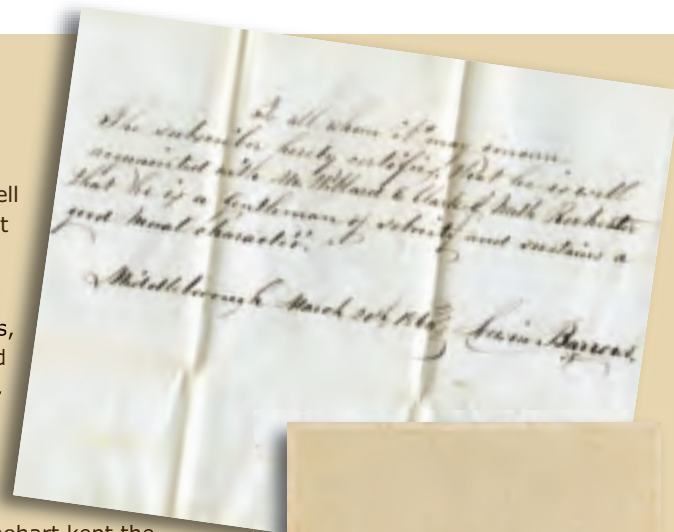 ell
t
s,
d
To all whom it may concern
The subscriber hereby certifies that he is well
acquainted with Mr Willard Clark of North Rochester
that he is a Gentleman of and sustains a
good moral character.
Middleborough March 20th Barrows.
ehart kept the